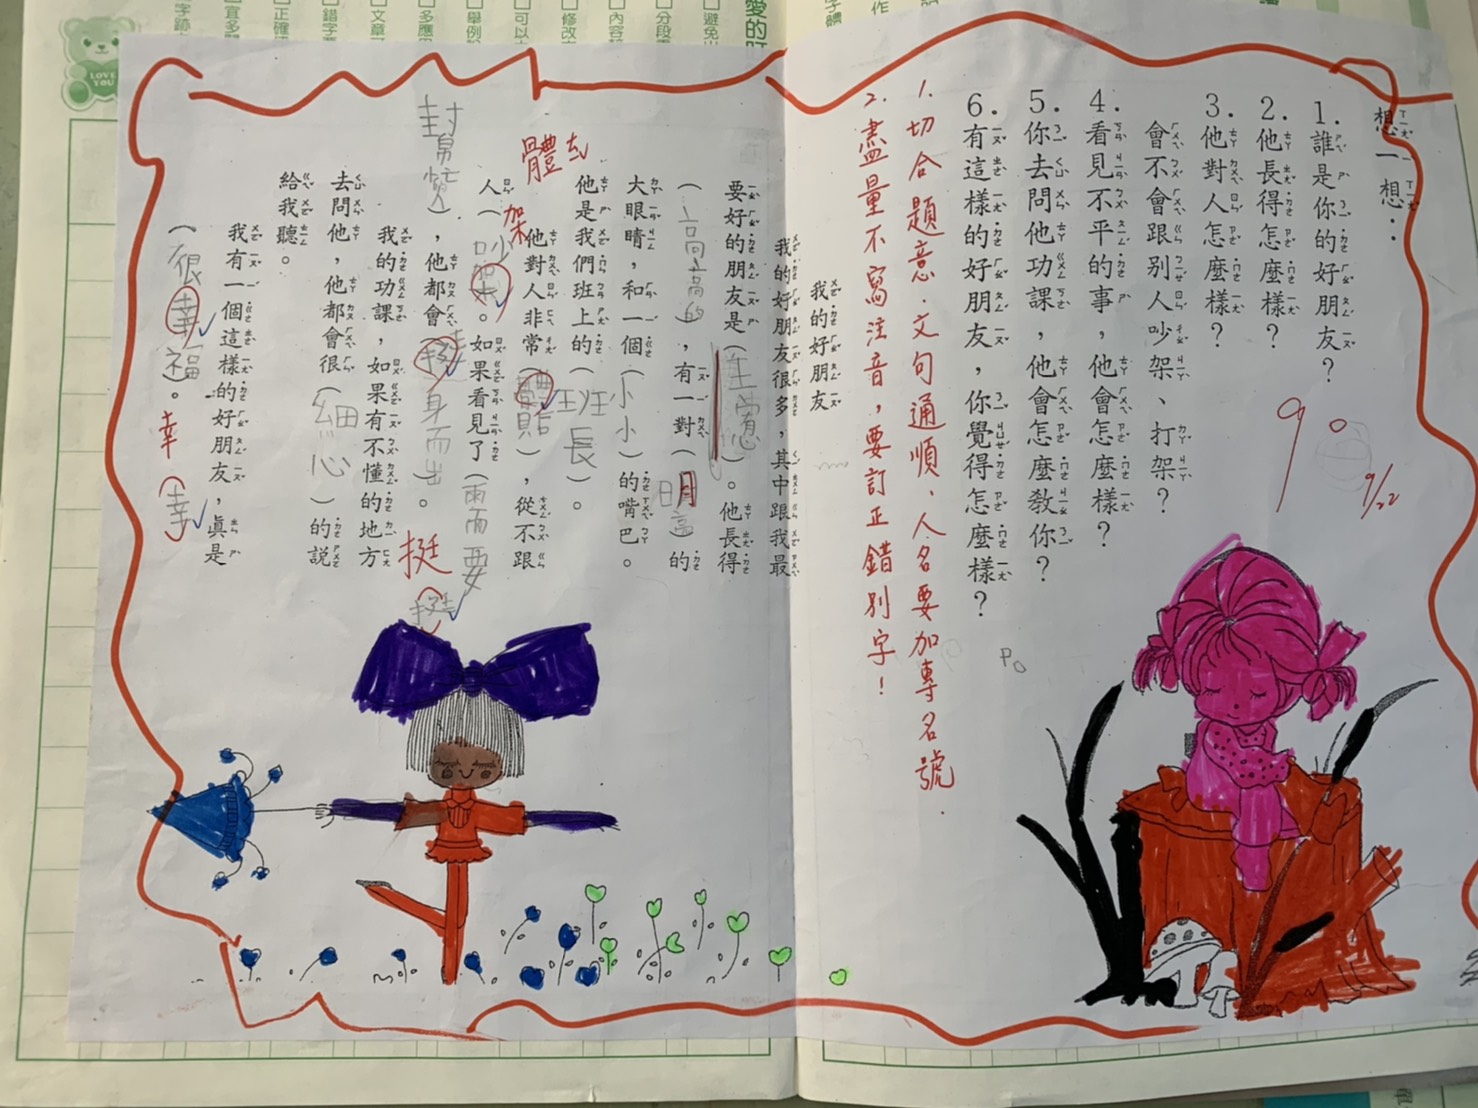 想一想：
1. 誰是你的好朋友？
2. 他長得怎麼樣？
3. 他對人怎麼樣？
會不會跟別人吵架、打架？
4. 看見不平的事，他會怎麼樣？
5. 你去問他功課，他會怎麼教你？
6. 有這樣的好朋友，你覺得怎麼樣？
90
9/22
1. 切合題意、文句通順、人名要加專名號
2. 盡量不寫注音，要訂正錯別字！
我的好朋友
我的好朋友很多，其中跟我最
要好的朋友是（）。他長得
（高高的），有一對（明高）的
大眼睛，和一個（小小）的嘴巴。
他是我們班上的（班長）。
他對人非常（體貼），從不跟
人（吵架）。如果看見了（需要
幫忙），他都會（挺身而出）。
我的功課，如果有不懂的地方
去問他，他都會很（細心）的說
給我聽。
我有一個這樣的好朋友，真是
（很幸福）。
體
架
挺
幸（幸）
LOVE YOU